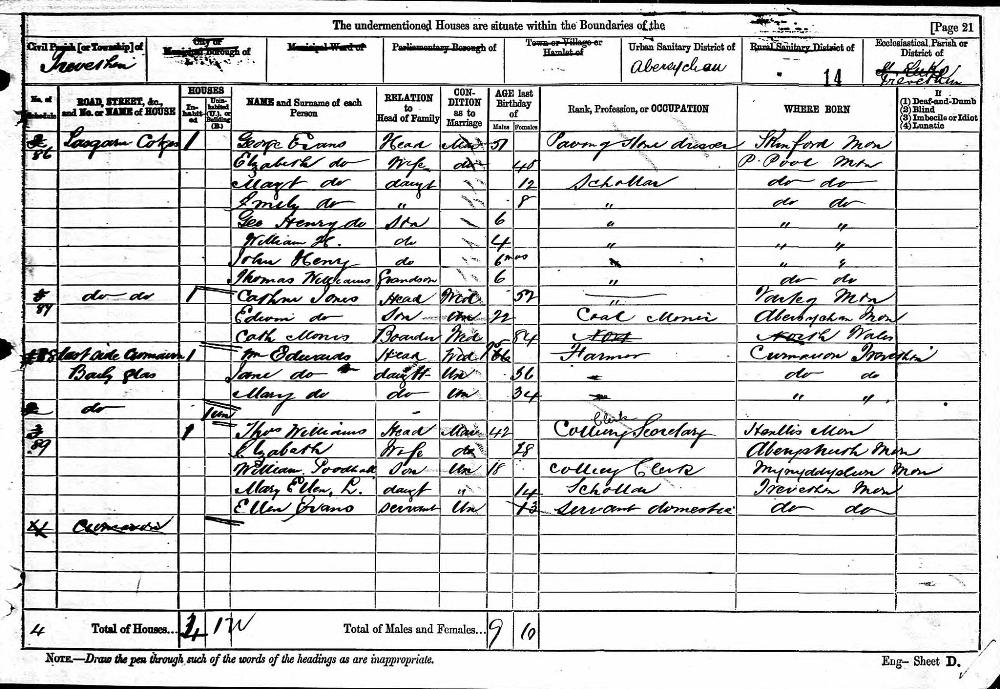 The undermentioned Houses are situate within the Boundaries of the [Page 21
Civil Parish [or Township] of
City or Municipal Borough of
Municipal Ward of
Parliamentary Borough of
Town or Village or Hamlet of
Urban Sanitary District of
Rural Sanitary District of
Ecclesiastical Parish or District of
Trevethin Abersychan 14 St. Luke Trevethin
No. of Schedule
ROAD, STREET, &c., and No. or NAME of HOUSE
HOUSES
Inhabited
Uninhabited (U.), or Building (B.)
NAME and Surname of each Person
RELATION to Head of Family
CONDITION as to Marriage
AGE last Birthday of
Males Females
Rank, Profession, or OCCUPATION
WHERE BORN
If
(1) Deaf-and-Dumb
(2) Blind
(3) Imbecile or Idiot
(4) Lunatic
86 1 George Evans Head Mar 51 Paving Stone dresser Mon
Elizabeth do Wife do 40 P. Pool Mon
Margt do daugt 12 Schollar do do
Emily do " 8 " do do
Geo Henry do Son 6 " " "
William H. do 4 " " "
John Henry do 6 mos " "
Thomas Williams Grandson 6 " do do
87 do do 1 Cathne Jones Head Wid 52 Mon
Edwin do Son Un 22 Coal Minor Abersychan Mon
Cath Morris Boarder Wid 84 North Wales
88 1 Wm Edwards Head Wid Farmer Trevethin
glas Jane do daught Un 36 do do
Mary do do Un 34 " "
do 1 un
89 1 Thos Williams Head Mar 42 Colliery Clerk Secretary Henllis Mon
Elizabeth Wife do 28 Mon
William Son Un 18 Colliery Clerk Mynyddyslwn Mon
Mary Ellen, L. daugt " 14 Schollar Trevethin Mon
Ellen Evans Servant Un 13 Servant domestic do do
4 Total of Houses... 4 1 U Total of Males and Females... 9 10
NOTE.—Draw the pen through such of the words of the headings as are inappropriate. Eng- Sheet D.